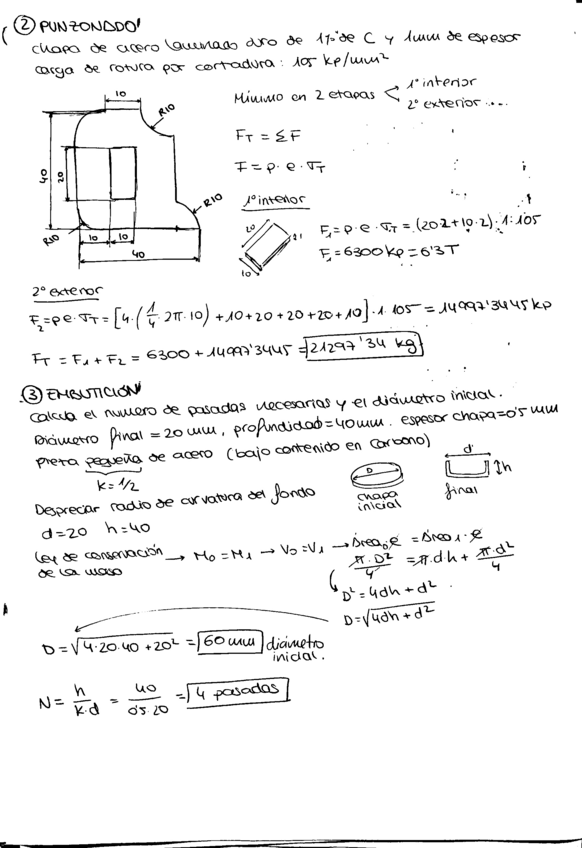 ② PUNZONADO
chapa de acero laminado duro de 1% de C y 1mm de espesor
carga de rotura por cortadura: 105 kp/mm²
10
R10
40
20
R10
R10
10 10
40
Mínimo en 2 etapas < 1º interior
2º exterior ...
F_T = ΣF
F = p · e · σ_T
1º interior
20
1
10
F₁ = p · e · σ_T = (20·2+10·2)·1·105
F₁ = 6300 kp = 6'3 T
2º exterior
F₂ = p e · σ_T = [4·(1/4 2π·10) + 10+20+20+20+10]·1·105 = 14997'3445 kp
F_T = F₁ + F₂ = 6300 + 14997'3445 = 21297'34 kg
③ EMBUTICIÓN
Calcula el numero de pasadas necesarias y el diámetro inicial.
Diámetro final = 20 mm, profundidad = 40 mm. espesor chapa = 0'5 mm
Preta pequeña de acero (bajo contenido en Carbono)
k = 1/2
Despreciar radio de curvatura del fondo
D
chapa
inicial
d
h
final
d = 20 h = 40
Ley de conservación → M₀ = M₁ → V₀ = V₁ → Área₀ · e = Área₁ · e
de la masa
π·D²/4 = π·d·h + π·d²/4
D² = 4dh + d²
D = √4dh + d²
D = √4·20·40 + 20² = 60 mm diámetro
inicial.
N = h/k·d = 40/0'5·20 = 4 pasadas